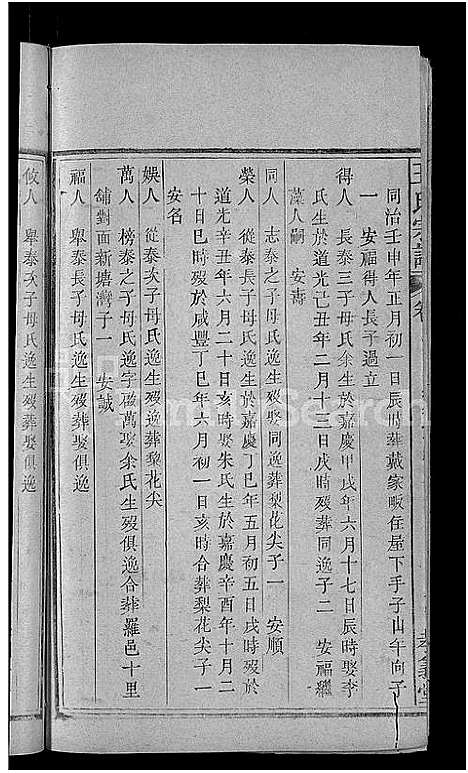 同治壬申年正月初一日辰時葬戴家畈住屋下手子山午向子
一　安福得人長子過立
得人　長泰三子母氏余生於嘉慶甲戌年六月十七日辰時娶李
氏生於道光己丑年二月十日戌時歿葬同逸子二　安福繼
藻人嗣　安壽
同人　志泰之子母氏逸生歿娶同逸葬梨花尖子一　安順
榮人　從泰長子母氏逸生於嘉慶丁巳年五月初五日戌時歿於
道光辛丑年六月二十日亥時娶朱氏生於嘉慶辛酉年十月二
十日巳時歿於咸豐丁巳年六月初一日亥時合葬梨花尖子一
安名
娛人　從泰次子母氏逸生歿葬梨花尖
萬人　榜泰之子母氏逸字萬娶余氏生歿俱逸合葬羅邑十里
舖對面新塘灣子一　安誠
福人　舉泰長子母氏逸生歿葬娶俱逸
攸人　舉泰次子母氏逸生歿葬娶俱逸
王氏宗譜　卷
孝義堂